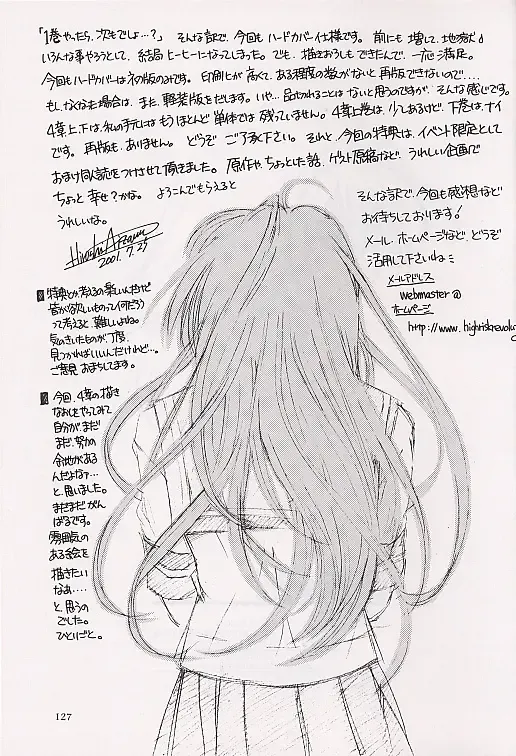 「1巻やったら、次もでしょ…？」 そんな訳で、今回もハードカバー仕様です。 前にも増して、地獄♪
いろんな事やろうとして、結局ヒーヒーになってしまった。でも、描きおろしもできたんで、一応満足。
今回もハードカバーはその版のみです。 印刷ヒが高くて、ある程度の数がないと再版できないので‥‥
もし、なくなった場合は、また、軽装版をだします。いや…品切れることはないと思うのですが、そんな感じです。
4章上、下は、私の手元にはもうほとんど単体では残っていません。4章上巻は、少しあるけど、下巻はナイ
です。再版も、ありません。 どうぞ ご了承下さい。 それと、今回の特典は、イベント限定として
おまけ同人誌をつけさせて頂きました。 原作や、ちょっとした話、ゲスト原稿など、うれしい企画で
ちょっと 幸せ？かな。 よろこんでもらえると
うれしいな。
2001. 7.25
そんな訳で、今回も感想など
お待ちしております！
メール、ホームページなど、どうぞ
活用して下さいね
メールアドレス
webmaster@
ホームページ
http://www.highriskrevolu
特典とか考えるの楽しいんだけど
皆が欲しいものって何だろう
って考えると、難しいよね。
気のきいたものが、丁度
見つかればいいんだけれど…。
ご意見、おまちしてます。
今回、4章の描き
なおしをやってみて
自分が、まだ
まだ、努力の
余地がある
んだよなァ…
と、思いました。
まだまだがん
ばるです。
雰囲気の
ある絵を
描きたい
なぁ‥‥
と、思うの
でした。
ひとりごと。
127